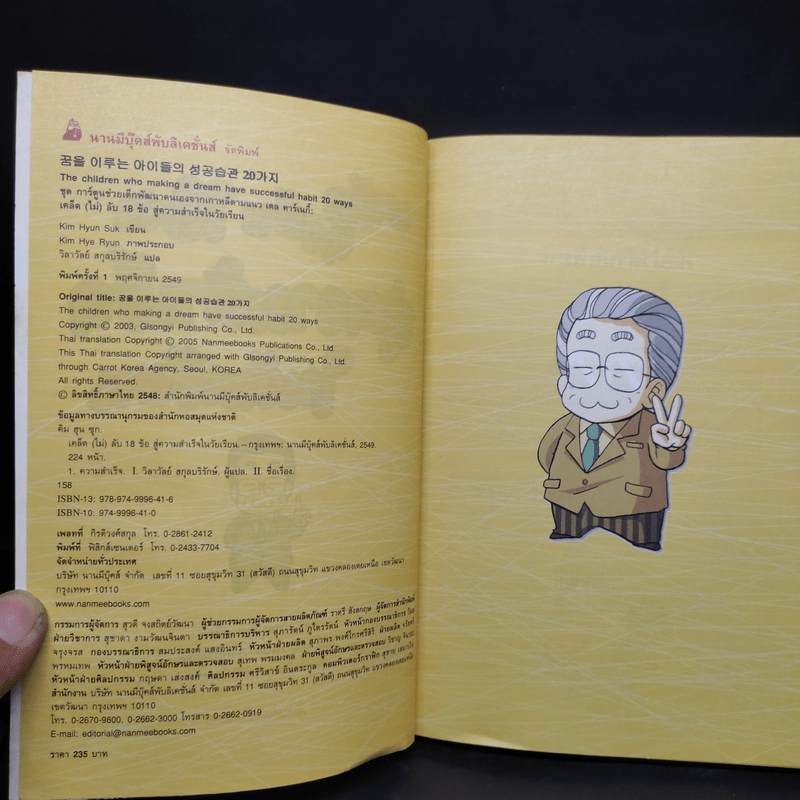 นานมีบุ๊คส์พับลิเคชั่นส์ จัดพิมพ์
꿈을 이루는 아이들의 성공습관 20가지
The children who making a dream have successful habit 20 ways
ชุด การ์ตูนช่วยเด็กพัฒนาตนเองจากเกาหลีตามแนว เดล คาร์เนกี้:
เคล็ด (ไม่) ลับ 18 ข้อ สู่ความสำเร็จในวัยเรียน
Kim Hyun Suk เขียน
Kim Hye Ryun ภาพประกอบ
วิลาวัลย์ สกุลบริรักษ์ แปล
พิมพ์ครั้งที่ 1 พฤศจิกายน 2549
Original title: 꿈을 이루는 아이들의 성공습관 20가지
The children who making a dream have successful habit 20 ways
Copyright © 2003, Glsongyi Publishing Co., Ltd.
Thai translation Copyright © 2005 Nanmeebooks Publications Co., Ltd.
This Thai translation Copyright arranged with Glsongyi Publishing Co., Ltd.
through Carrot Korea Agency, Seoul, KOREA
All rights Reserved.
© ลิขสิทธิ์ภาษาไทย 2548: สำนักพิมพ์นานมีบุ๊คส์พับลิเคชั่นส์
ข้อมูลทางบรรณานุกรมของสำนักหอสมุดแห่งชาติ
คิม ฮุน ซุก.
เคล็ด (ไม่) ลับ 18 ข้อ สู่ความสำเร็จในวัยเรียน.--กรุงเทพฯ: นานมีบุ๊คส์พับลิเคชั่นส์, 2549.
224 หน้า.
1. ความสำเร็จ. I. วิลาวัลย์ สกุลบริรักษ์, ผู้แปล. II. ชื่อเรื่อง.
158
ISBN-13: 978-974-9996-41-6
ISBN-10: 974-9996-41-0
เพลทที่ กิรติวงศ์สกุล โทร. 0-2861-2412
พิมพ์ที่ พิสิกส์เซนเตอร์ โทร. 0-2433-7704
จัดจำหน่ายทั่วประเทศ
บริษัท นานมีบุ๊คส์ จำกัด เลขที่ 11 ซอยสุขุมวิท 31 (สวัสดี) ถนนสุขุมวิท แขวงคลองเตยเหนือ เขตวัฒนา
กรุงเทพฯ 10110
www.nanmeebooks.com
กรรมการผู้จัดการ สุวดี จงสถิตย์วัฒนา ผู้ช่วยกรรมการผู้จัดการสายผลิตภัณฑ์ ราตรี สังสกฤษ ผู้จัดการสำนักพิมพ์
ฝ่ายวิชาการ สุชาดา งามวัฒนจินดา บรรณาธิการบริหาร สุภารัตน์ ภูไตรรัตน์ หัวหน้ากองบรรณาธิการ
จรุงจรส กองบรรณาธิการ สมประสงค์ แสงอินทร์ หัวหน้าฝ่ายผลิต สุภาพร พงศ์ไกรศรีสิริ ฝ่ายผลิต
พรหมเทพ หัวหน้าฝ่ายพิสูจน์อักษรและตรวจสอบ สุเทพ พรมมงคล ฝ่ายพิสูจน์อักษรและตรวจสอบ
หัวหน้าฝ่ายศิลปกรรม กฤษดา เส่งสงค์ ศิลปกรรม ศรีวิสาข์ อินตระกูล คอมพิวเตอร์กราฟิก
สำนักงาน บริษัท นานมีบุ๊คส์ จำกัด เลขที่ 11 ซอยสุขุมวิท 31 (สวัสดี) ถนนสุขุมวิท แขวงคลองเตยเหนือ
เขตวัฒนา กรุงเทพฯ 10110
โทร. 0-2670-9800, 0-2662-3000 โทรสาร 0-2662-0919
E-mail: editorial@nanmeebooks.com
ราคา 235 บาท